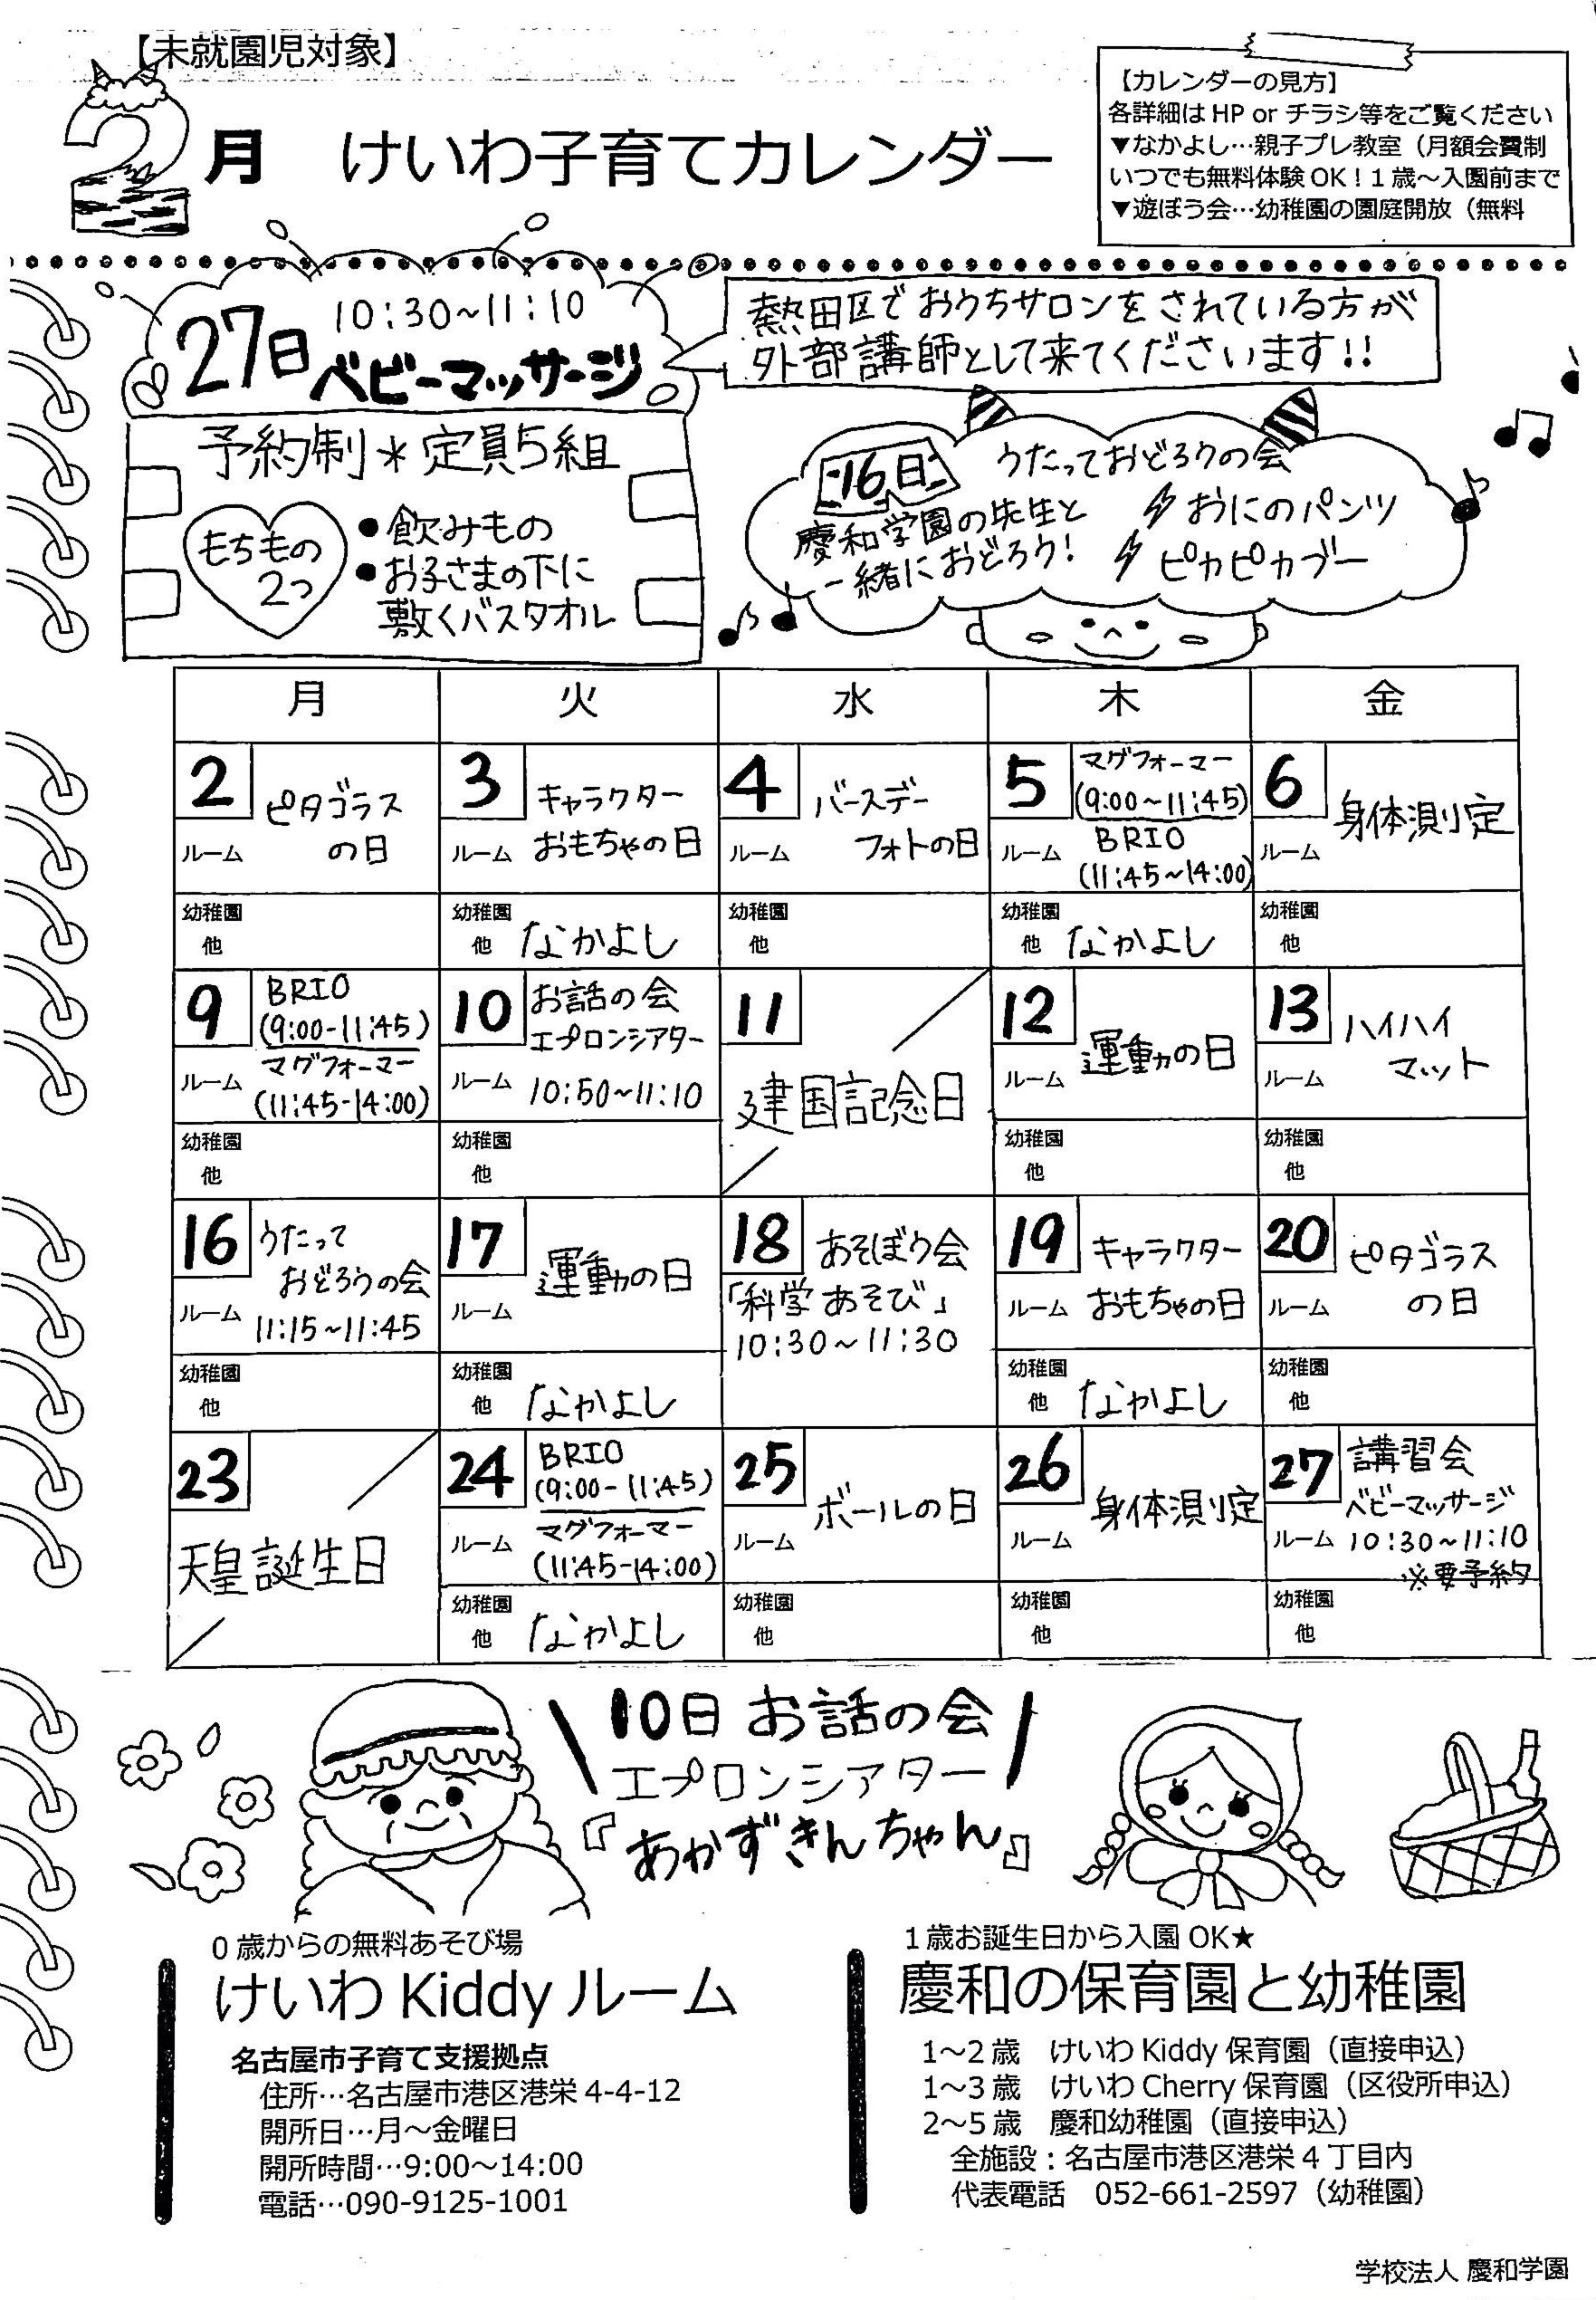 【未就園児対象】
2月 けいわ子育てカレンダー
【カレンダーの見方】
各詳細は HP or チラシ等をご覧ください
▼なかよし…親子プレ教室（月額会費制
いつでも無料体験 OK！1 歳～入園前まで
▼遊ぼう会…幼稚園の園庭開放（無料
27日 10:30～11:10
ベビーマッサージ
熱田区でおうちサロンをされている方が
外部講師として来てくださいます!!
予約制＊定員5組
もちもの
2つ
●飲みもの
●お子さまの下に
敷くバスタオル
16日
うたっておどろうの会
慶和学園の先生と
一緒におどろう!
おにのパンツ
ピカピカブー
月 火 水 木 金
2 ピタゴラス
ルーム の日
幼稚園
他
3 キャラクター
ルーム おもちゃの日
幼稚園
他 なかよし
4 バースデー
ルーム フォトの日
幼稚園
他
5 マグフォーマー
(9:00～11:45)
ルーム BRIO
(11:45～14:00)
幼稚園
他 なかよし
6 身体測定
ルーム
幼稚園
他
9 BRIO
(9:00-11:45)
ルーム マグフォーマー
(11:45-14:00)
幼稚園
他
10 お話の会
エプロンシアター
ルーム 10:50～11:10
幼稚園
他
11
建国記念日
12 運動の日
ルーム
幼稚園
他
13 ハイハイ
ルーム マット
幼稚園
他
16 うたって
おどろうの会
ルーム 11:15～11:45
幼稚園
他
17 運動の日
ルーム
幼稚園
他 なかよし
18 あそぼう会
「科学あそび」
10:30～11:30
19 キャラクター
ルーム おもちゃの日
幼稚園
他 なかよし
20 ピタゴラス
ルーム の日
幼稚園
他
23
天皇誕生日
24 BRIO
(9:00-11:45)
ルーム マグフォーマー
(11:45-14:00)
幼稚園
他 なかよし
25 ボールの日
ルーム
幼稚園
他
26 身体測定
ルーム
幼稚園
他
27 講習会
ベビーマッサージ
ルーム 10:30～11:10
※要予約
幼稚園
他
10日 お話の会
エプロンシアター
『あかずきんちゃん』
0 歳からの無料あそび場
けいわ Kiddy ルーム
名古屋市子育て支援拠点
住所…名古屋市港区港栄 4-4-12
開所日…月～金曜日
開所時間…9:00～14:00
電話…090-9125-1001
1 歳お誕生日から入園 OK★
慶和の保育園と幼稚園
1～2 歳 けいわ Kiddy 保育園（直接申込）
1～3 歳 けいわ Cherry 保育園（区役所申込）
2～5 歳 慶和幼稚園（直接申込）
全施設：名古屋市港区港栄 4 丁目内
代表電話 052-661-2597（幼稚園）
学校法人 慶和学園